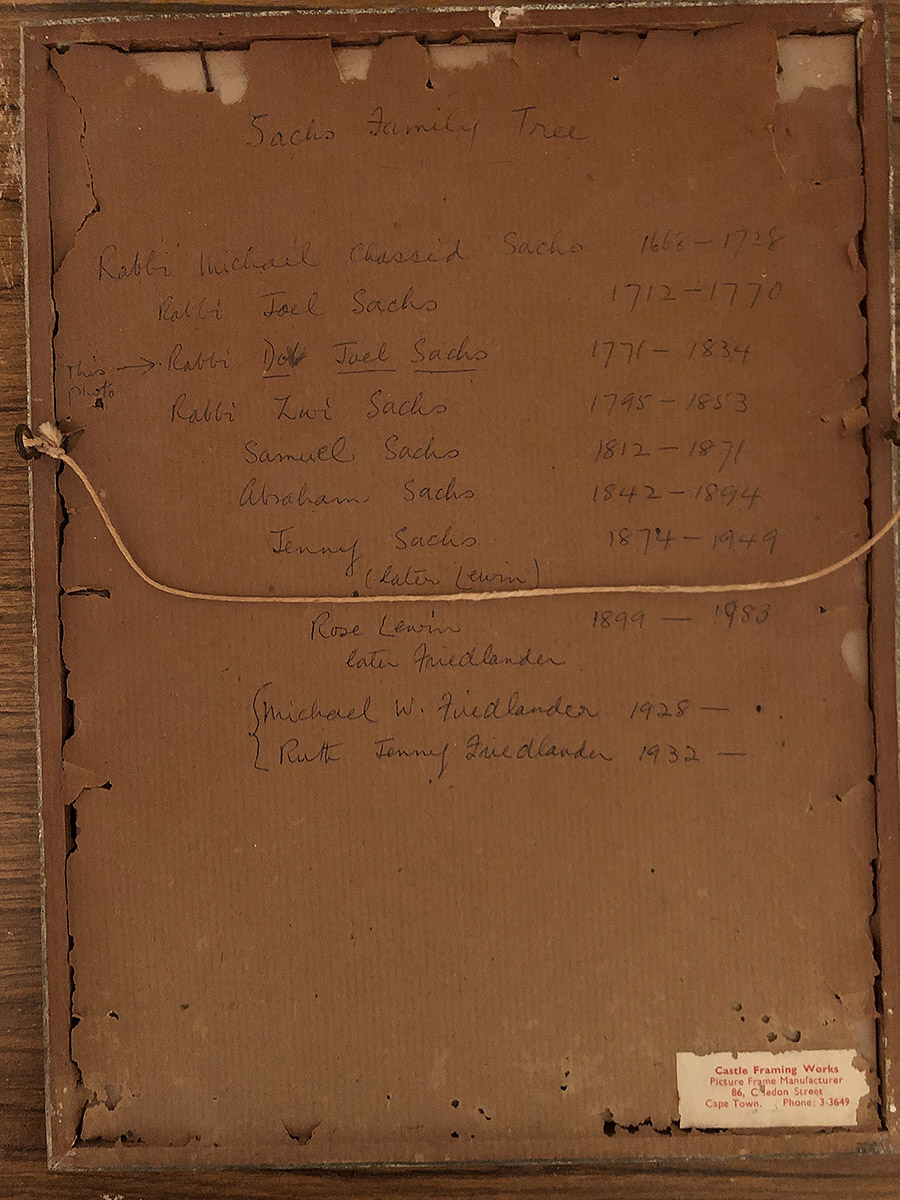 Sachs Family Tree
Rabbi Michael Chassid Sachs 1668 – 1728
Rabbi Joel Sachs 1712 – 1770
This → Rabbi Dob Joel Sachs 1771 – 1834
photo
Rabbi Zwi Sachs 1795 – 1853
Samuel Sachs 1812 – 1871
Abraham Sachs 1842 – 1894
Jenny Sachs 1874 – 1949
(later Lewin)
Rose Lewin 1899 — 1983
later Friedlander
{ Michael W. Friedlander 1928 —
Ruth Jenny Friedlander 1932 —
Castle Framing Works
Picture Frame Manufacturer
86, Street
Cape Town. Phone: 3-3649